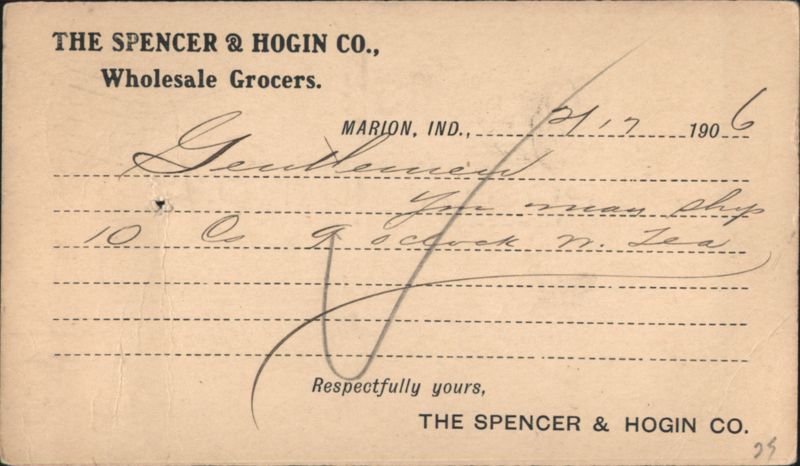 THE SPENCER & HOGIN CO.,
Wholesale Grocers.
MARION, IND., 2/17 1906
Gentlemen
You may ship
10 Cs 9 oclock W. Tea
Respectfully yours,
THE SPENCER & HOGIN CO.